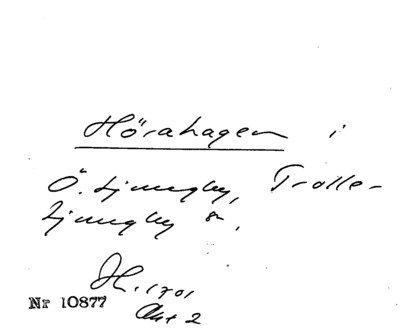 Hörahagen i
Ö. Ljungby, Trolle-
Ljungby sn,
JK. 1701
Nr 10877
Akt 2